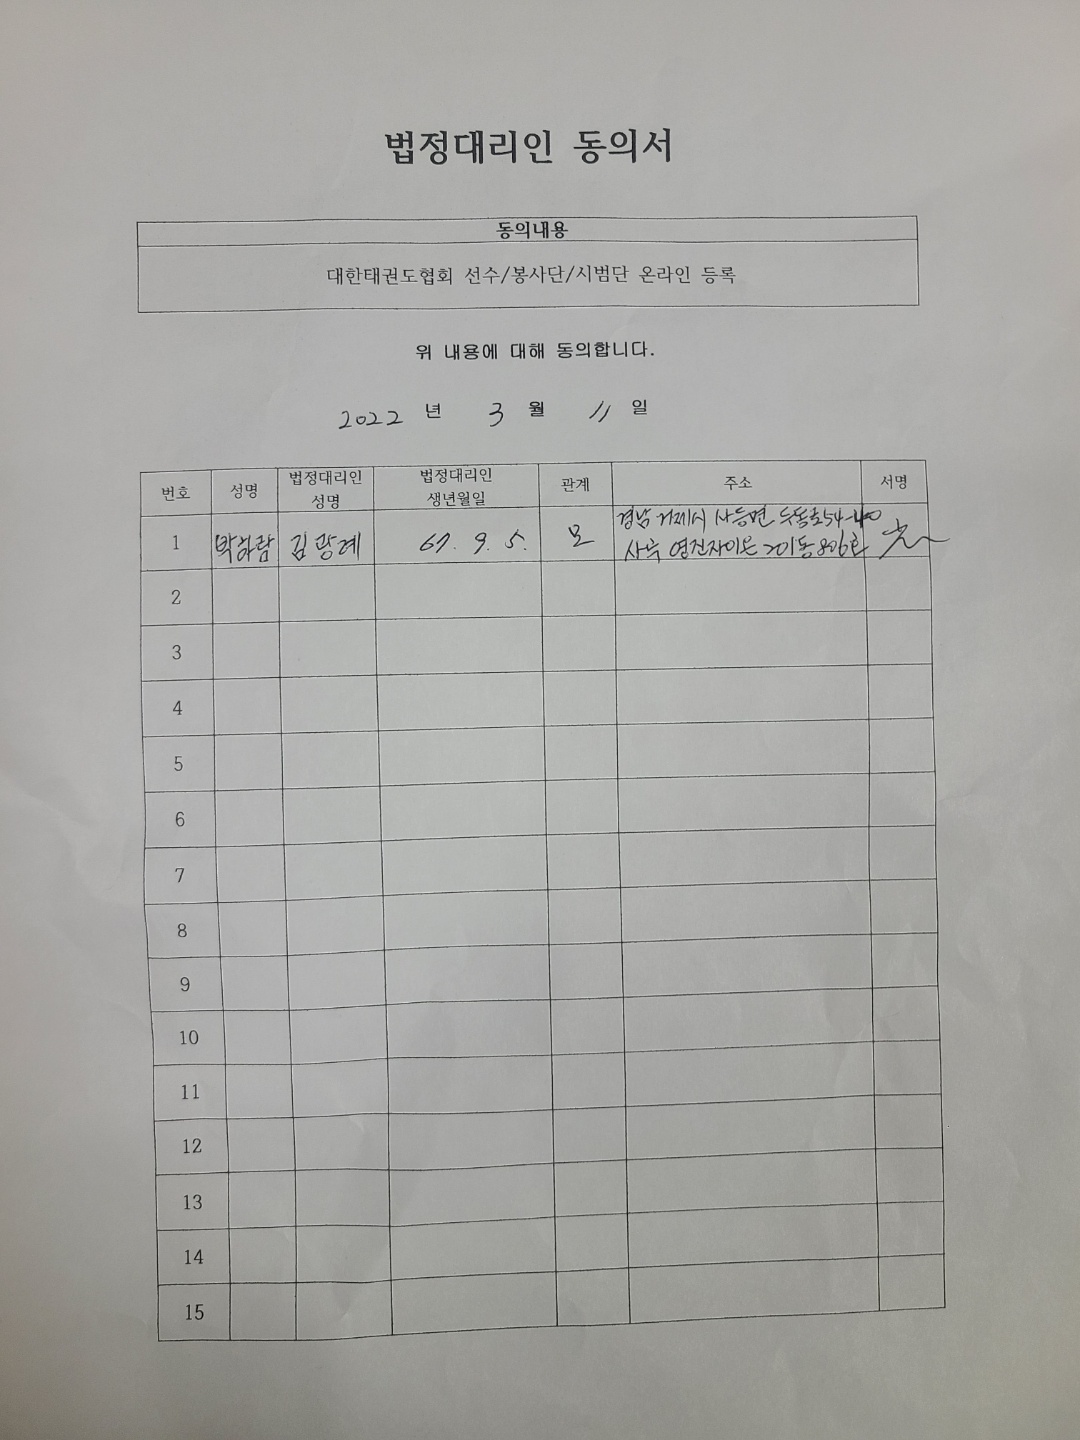 법정대리인 동의서
동의내용
대한태권도협회 선수/봉사단/시범단 온라인 등록
위 내용에 대해 동의합니다.
2022 년 3 월 11 일
번호 성명 법정대리인 성명 법정대리인 생년월일 관계 주소 서명
1 박하람 김광례 67. 9. 5. 모 경남 거제시 사등면 두동로54-40
사곡 영진자이온 201동 806호
2
3
4
5
6
7
8
9
10
11
12
13
14
15